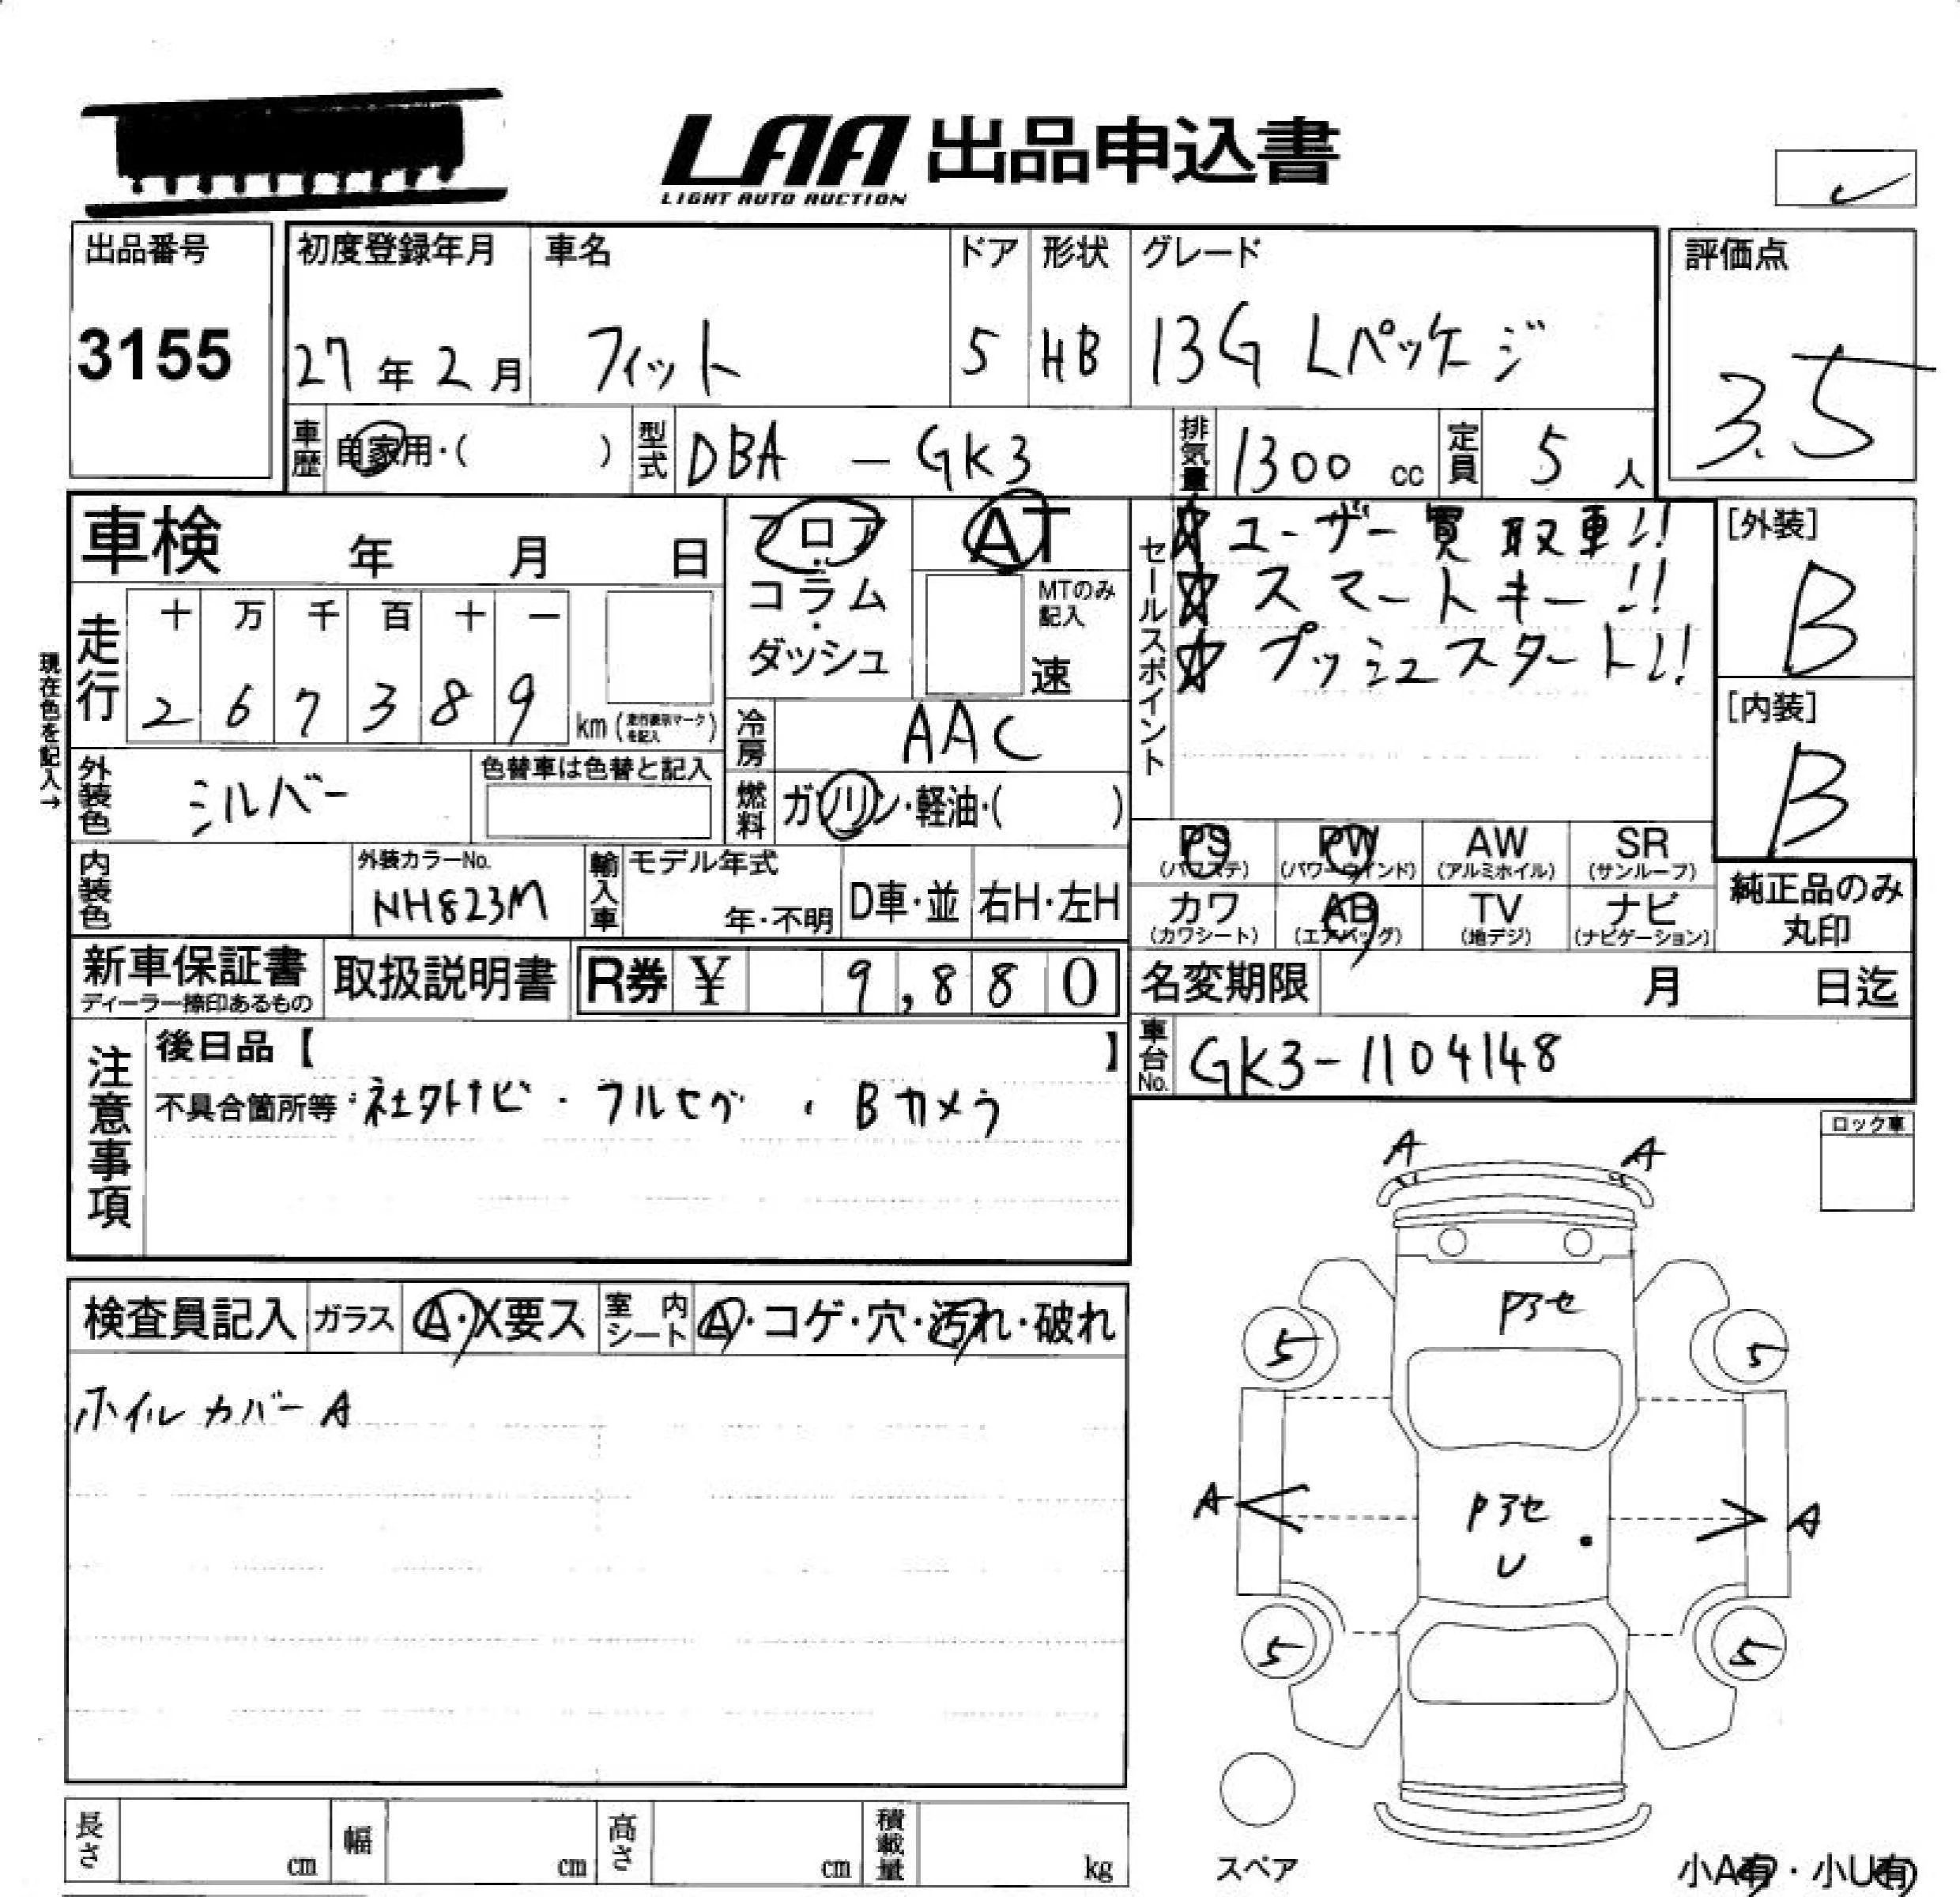 LAA 出品申込書
LIGHT AUTO AUCTION
出品番号
3155
初度登録年月
27年2月
車名
フィット
ドア
5
形状
HB
グレード
13G Lパッケージ
評価点
3.5
車歴
自家用・( )
型式
DBA - GK3
排気量
1300 cc
定員
5 人
車検 年 月 日
フロア・
コラム・
ダッシュ
AT
MTのみ
記入
速
セールスポイント
☆ユーザー買取車!!
☆スマートキー!!
☆プッシュスタート!!
[外装]
B
[内装]
B
現在色を記入→
走行
十 万 千 百 十 一
2 6 7 3 8 9 km (走行表示マークを記入)
冷房
AAC
外装色
シルバー
色替車は色替と記入
燃料
ガソリン・軽油・( )
PS
(パワステ)
PW
(パワーウインド)
AW
(アルミホイル)
SR
(サンルーフ)
カワ
(カワシート)
AB
(エアバッグ)
TV
(地デジ)
ナビ
(ナビゲーション)
純正品のみ
丸印
内装色
外装カラーNo.
NH823M
輸入車
モデル年式
年・不明
D車・並
右H・左H
新車保証書
ディーラー捺印あるもの
取扱説明書
R券 ¥ 9,880
名変期限 月 日迄
車台No.
GK3-1104148
注意事項
後日品【 】
不具合箇所等・社外ナビ・フルセグ・Bカメラ
ロック車
検査員記入
ガラス
A・X要ス
室内シート
A・コゲ・穴・汚れ・破れ
ホイルカバーA
A
A
Pアセ
5
5
A
Pアセ
U
A
5
5
スペア
長さ cm
幅 cm
高さ cm
積載量 kg
小A有・小U有